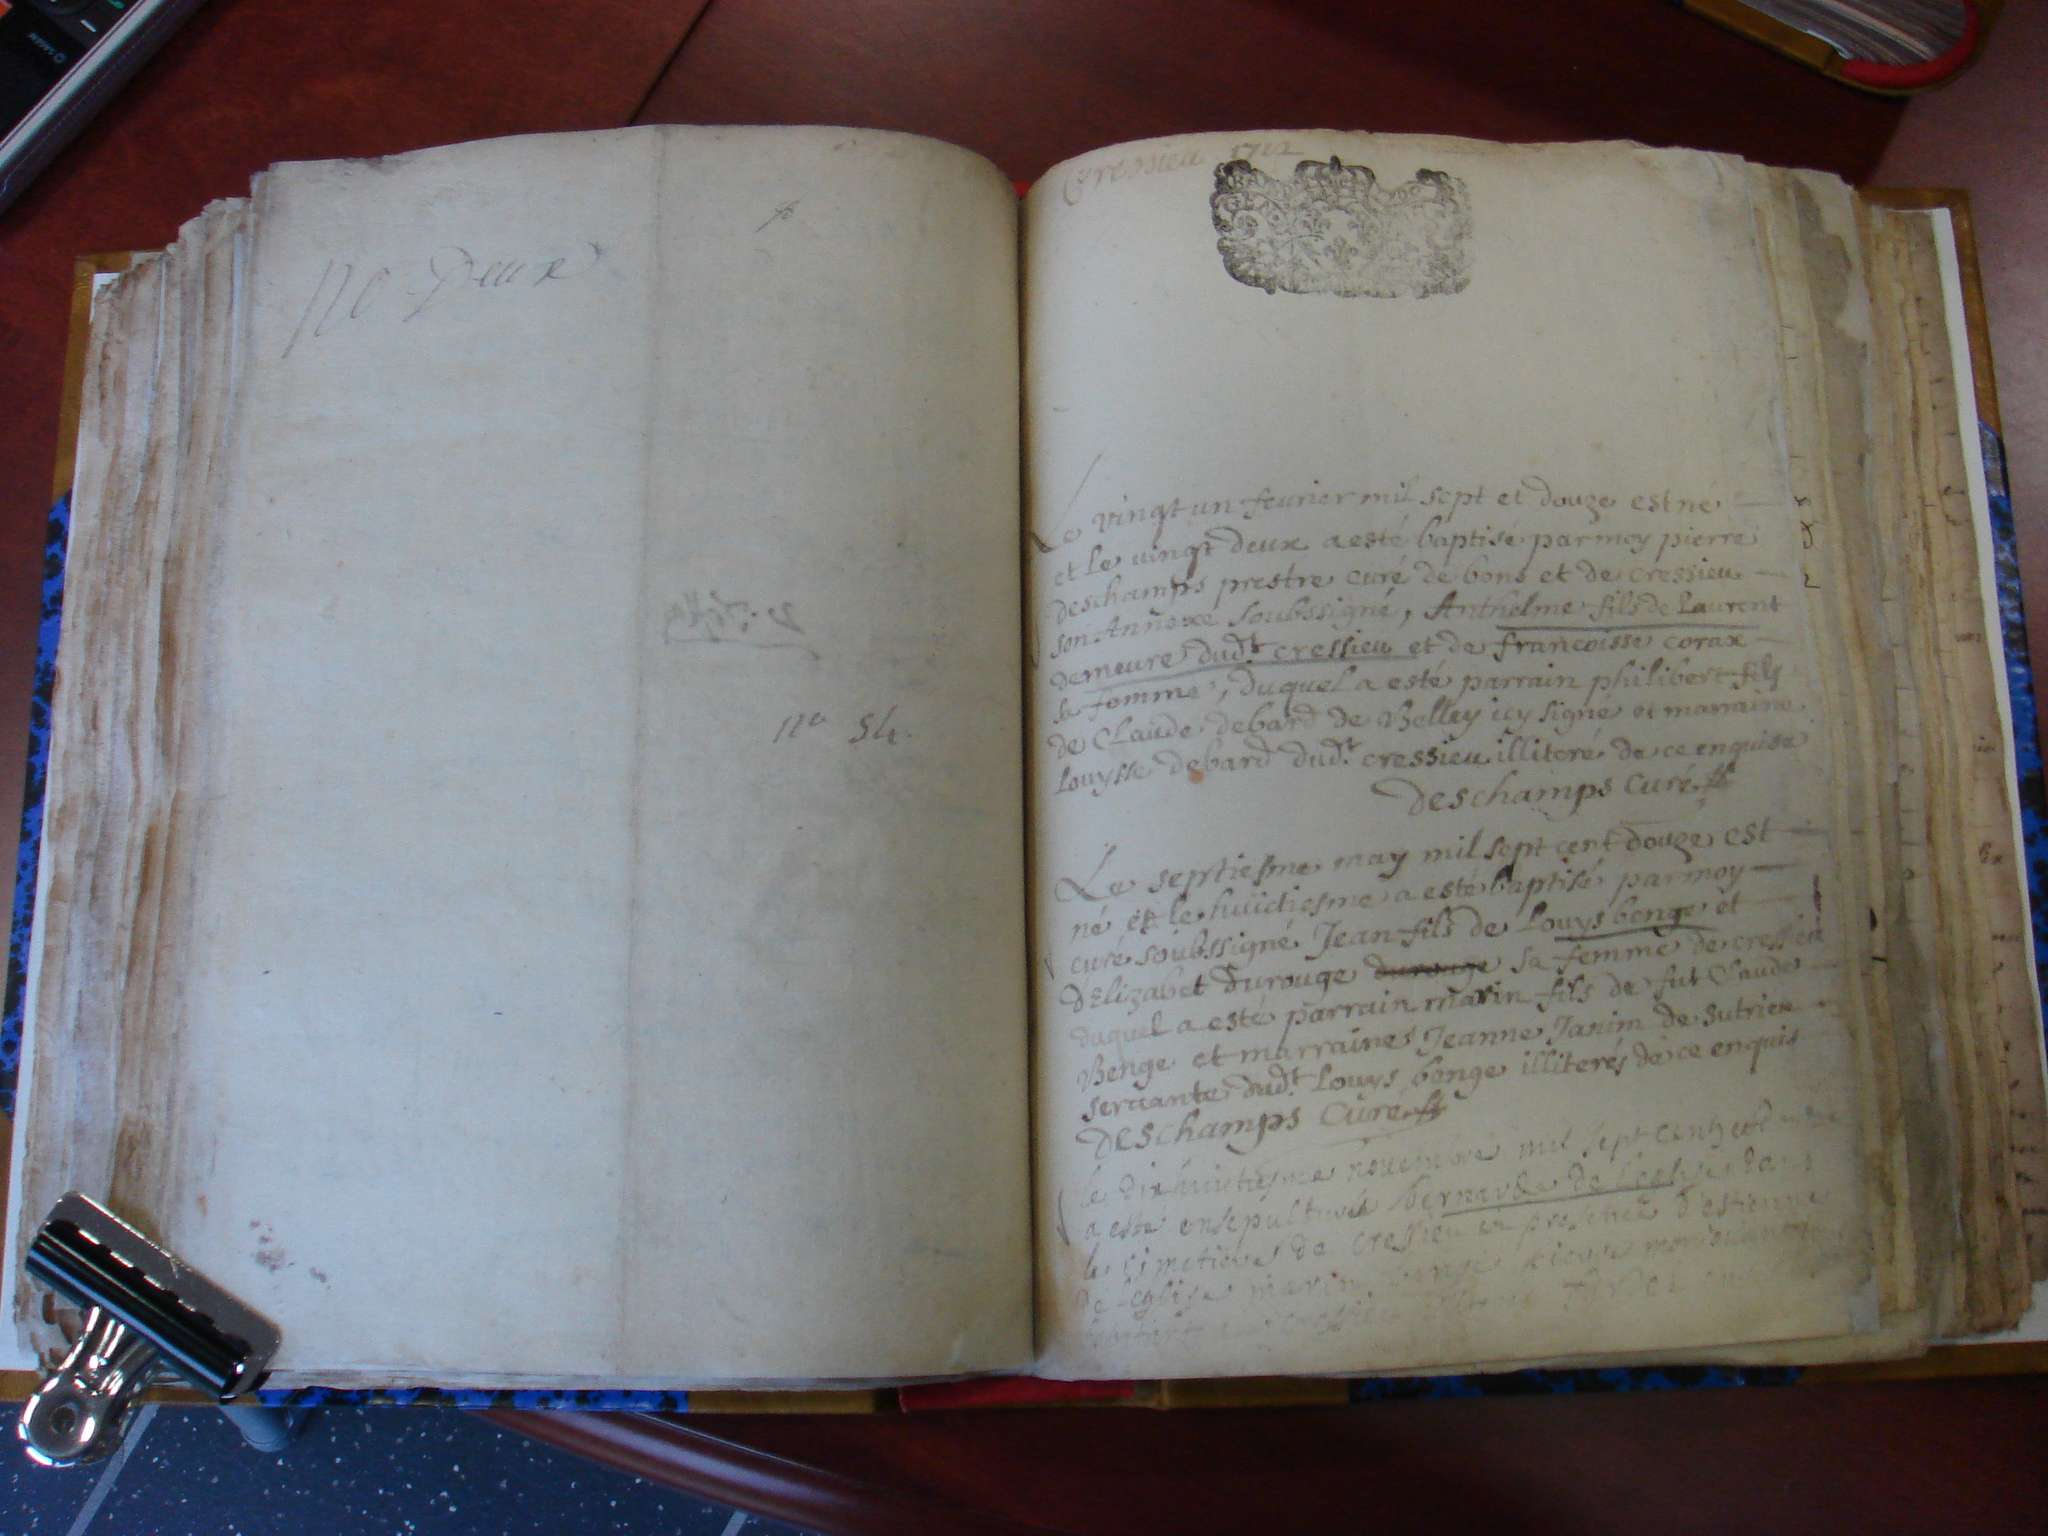 no Deux
no 54.
Cressieu 1712
Le vingt un feurier mil sept et douze est né
et le vingt deux a esté baptisé par moy pierre
deschamps prestre curé de bons et de cressieu
son Annexe soubssigné, Anthelme fils de Laurent
demeure dudt cressieu et de francoisse corax
sa femme, duquel a esté parrain philibert fils
de Claude debard de Belley icy signé et marraine
Louysse debard dudt cressieu illiteré de ce enquise
Deschamps Curé
Le septiesme may mil sept cent douze est
né et le huictiesme a esté baptisé par moy
curé soubssigné Jean fils de Louys benge et
d'Elizabet durouge durouge sa femme de cressieu
duquel a esté parrain marin fils de fut Claude
Benge et marraine Jeanne Janim de sutrieu
seruante dudt Louys benge illiterés de ce enquis
Deschamps Curé
le dixhuitiesme nouembre mil sept cent
a esté ensepulturée bernarde de Leglise dans
le cimetiere de cressieu en presence d'estienne
de Leglise marin benge